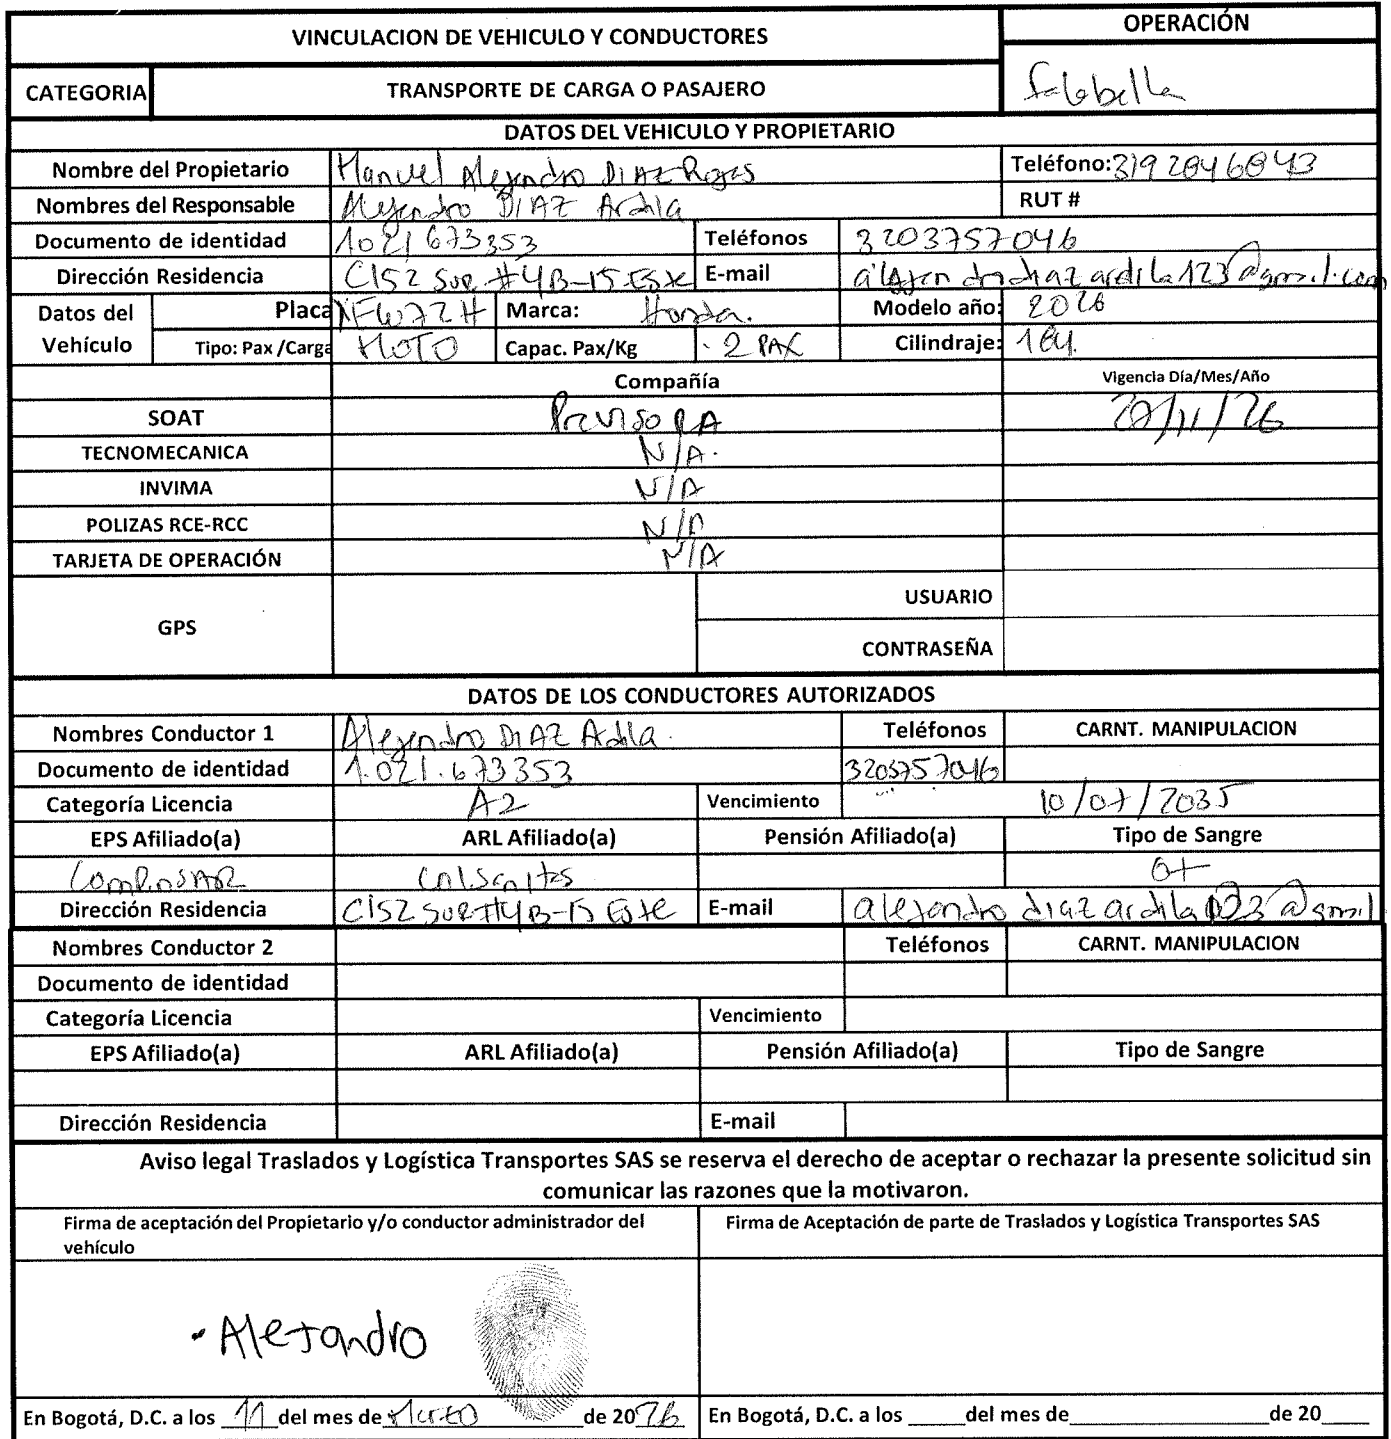 VINCULACION DE VEHICULO Y CONDUCTORES
OPERACIÓN
CATEGORIA
TRANSPORTE DE CARGA O PASAJERO
falabella
DATOS DEL VEHICULO Y PROPIETARIO
Nombre del Propietario Manuel Alejandro DIAZ Rojas Teléfono: 3192846843
Nombres del Responsable Alejandro DIAZ Ardila RUT #
Documento de identidad 1021673353 Teléfonos 3203757046
Dirección Residencia Cl52 Sur #4B-15 Este E-mail alejandrodiazardila123@gmail.com
Datos del Vehículo Placa XFW72H Marca: Honda. Modelo año: 2026
Tipo: Pax /Carga MOTO Capac. Pax/Kg 2 PAX Cilindraje: 184.
Compañía Vigencia Día/Mes/Año
SOAT PrevisoRA 27/11/26
TECNOMECANICA N/A.
INVIMA N/A
POLIZAS RCE-RCC N/A
TARJETA DE OPERACIÓN N/A
GPS USUARIO
CONTRASEÑA
DATOS DE LOS CONDUCTORES AUTORIZADOS
Nombres Conductor 1 Alejandro DIAZ Ardila. Teléfonos CARNT. MANIPULACION
Documento de identidad 1.021.673353 3203757046
Categoría Licencia A2 Vencimiento 10/07/2035
EPS Afiliado(a) ARL Afiliado(a) Pensión Afiliado(a) Tipo de Sangre
CompenSAR Colsanitas O+
Dirección Residencia Cl52 SUR #4B-15 Este E-mail alejandrodiazardila123@gmail
Nombres Conductor 2 Teléfonos CARNT. MANIPULACION
Documento de identidad
Categoría Licencia Vencimiento
EPS Afiliado(a) ARL Afiliado(a) Pensión Afiliado(a) Tipo de Sangre
Dirección Residencia E-mail
Aviso legal Traslados y Logística Transportes SAS se reserva el derecho de aceptar o rechazar la presente solicitud sin
comunicar las razones que la motivaron.
Firma de aceptación del Propietario y/o conductor administrador del
vehículo
Firma de Aceptación de parte de Traslados y Logística Transportes SAS
Alejandro
En Bogotá, D.C. a los 11 del mes de Marzo de 2026 En Bogotá, D.C. a los _____ del mes de _____ de 20____